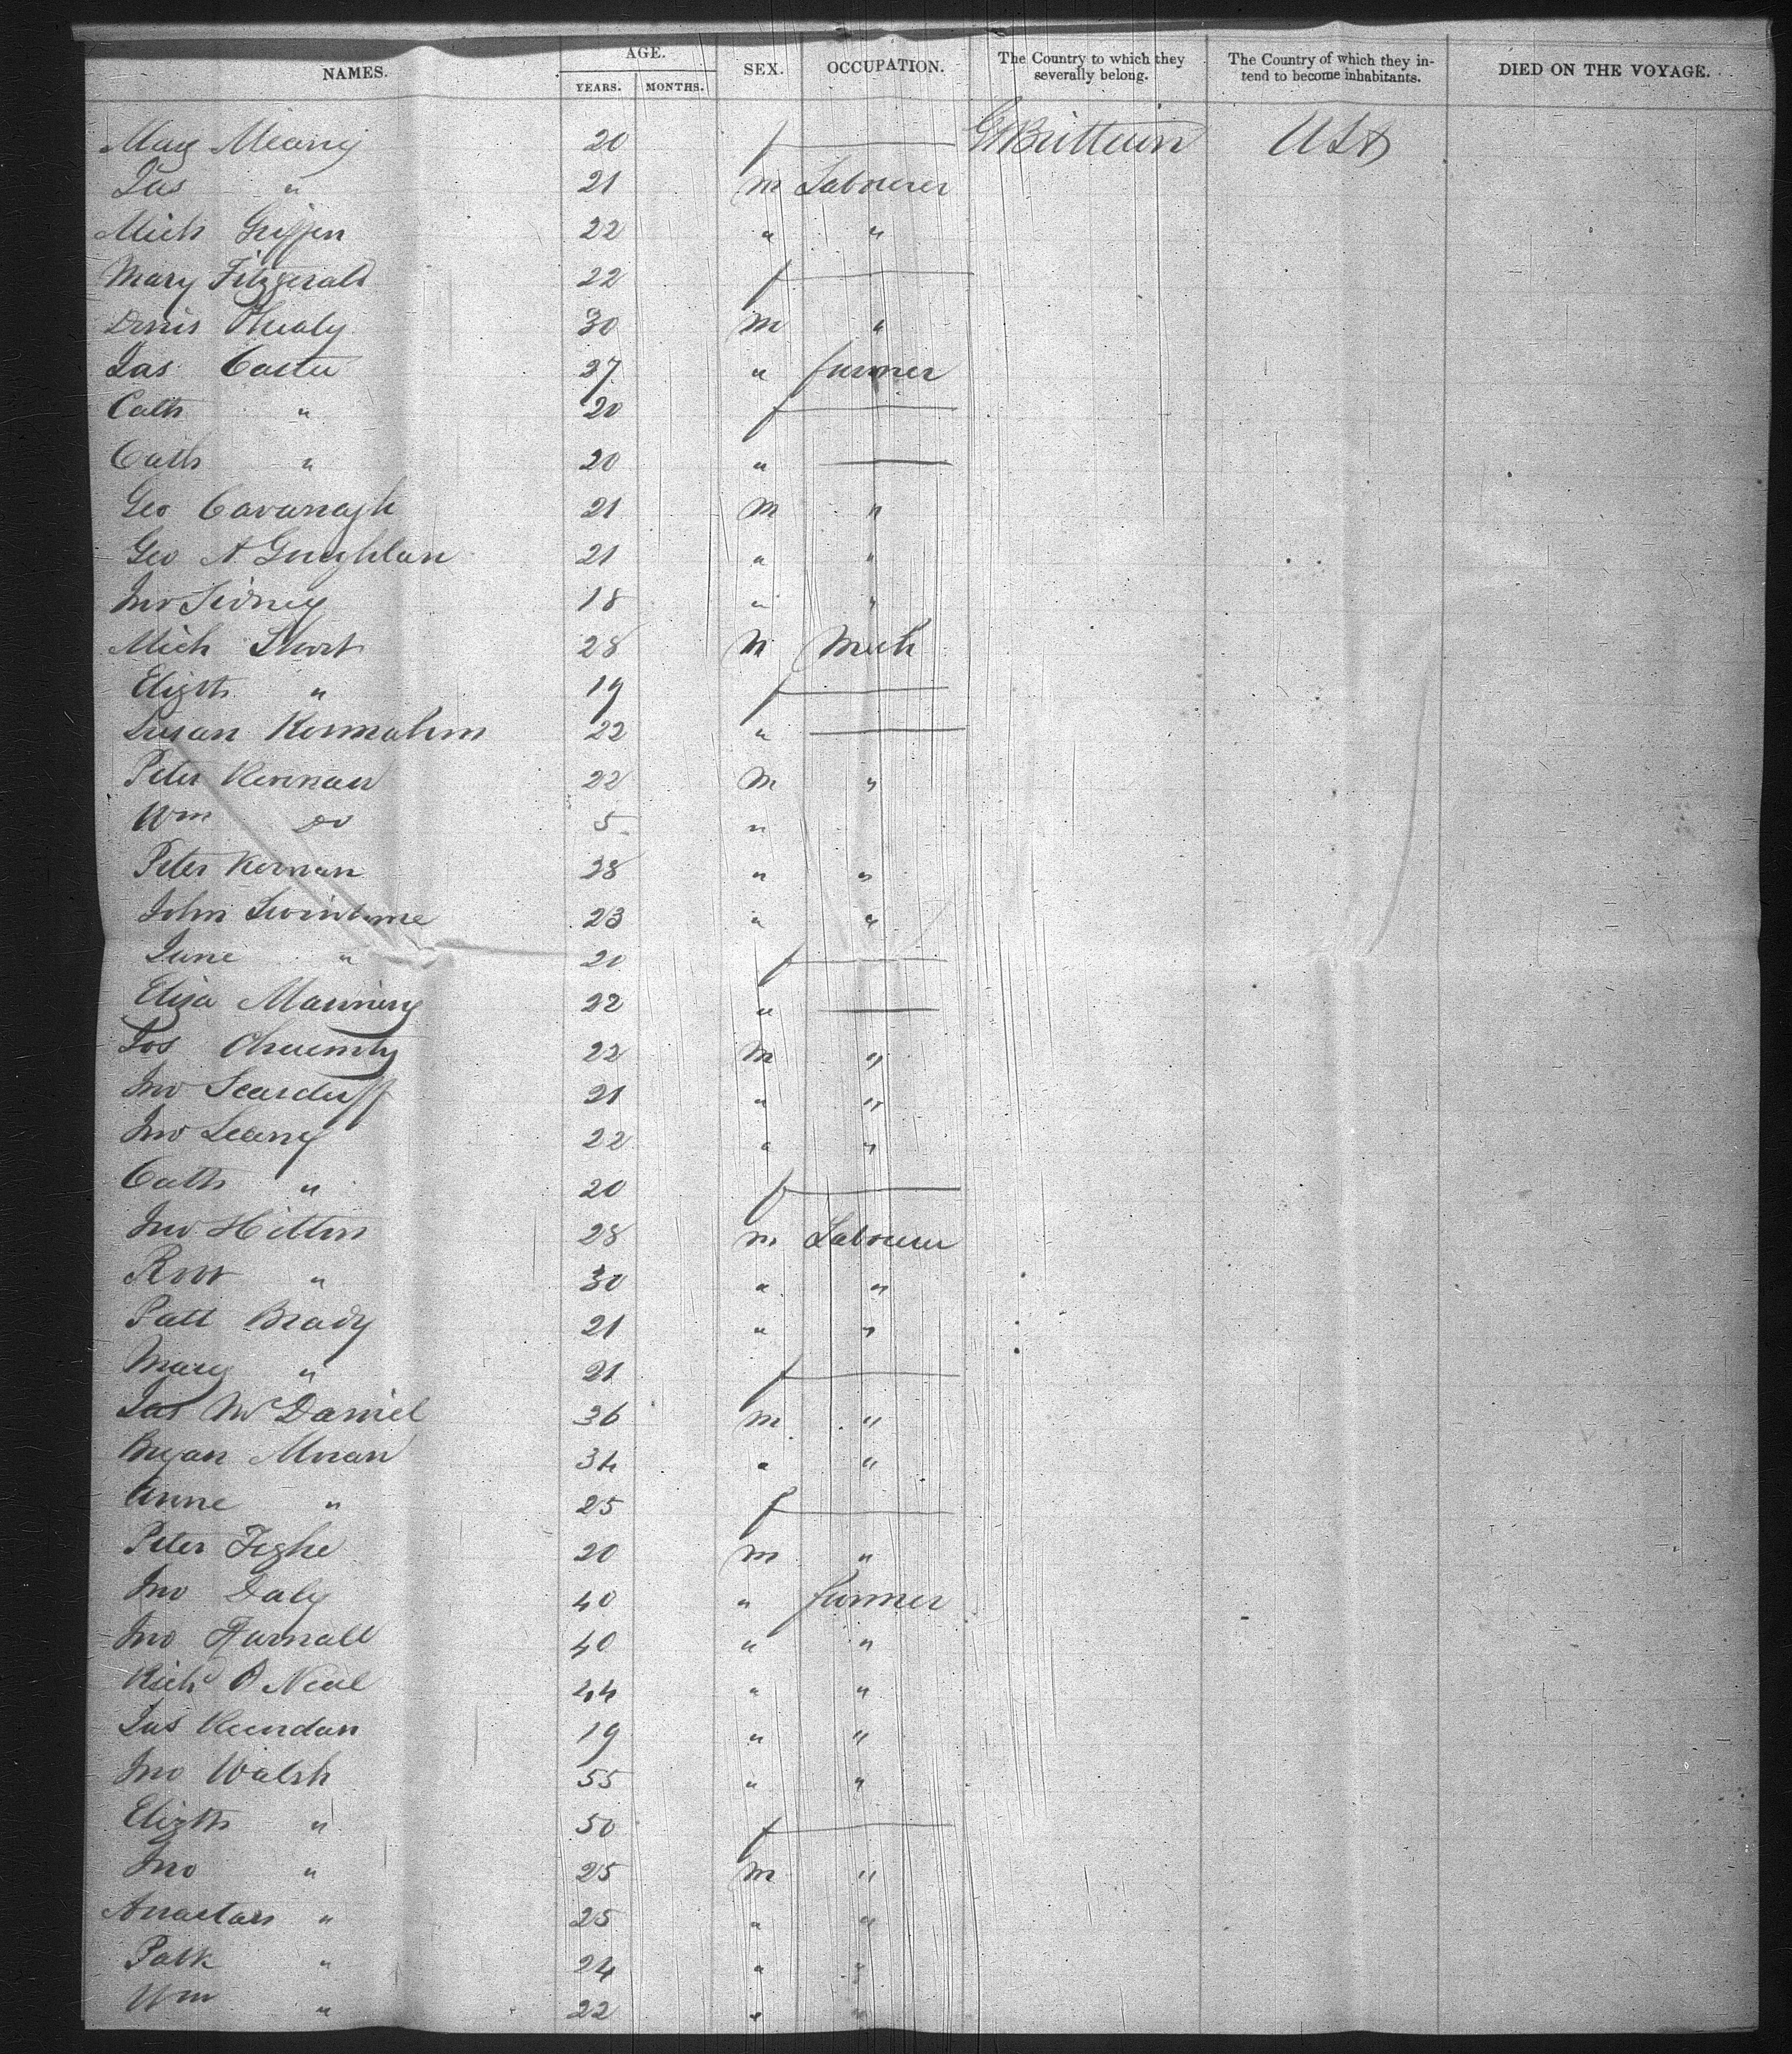 NAMES. AGE. SEX. OCCUPATION. The Country to which they severally belong. The Country of which they intend to become inhabitants. DIED ON THE VOYAGE.
YEARS. MONTHS.
Mary Meany 20 f — G Brittain USA
Jas " 21 m Labourer
Mich Griffin 22 " "
Mary Fitzgerald 22 f —
Denis Healy 30 m "
Jas Carter 27 " farmer
Cath " 20 f —
Cath " 20 " —
Geo Cavanagh 21 m "
Geo A 21 " "
Jno Sidney 18 " "
Mich Short 28 m Mech
Elizth " 19 f —
Susan 22 " —
Peter Kernan 22 m "
Wm Do 5 "
Peter Kernan 28 " "
John 23 " "
Jane " 20 f —
Eliza Manning 22 " —
Jos 22 m "
Jno 21 " "
Jno Leary 22 " "
Cath " 20 f —
Jno Hilton 28 m Labourer
Robt " 30 " "
Patt Brady 21 " "
Mary " 21 f —
Jas McDaniel 36 m "
Bryan Moran 34 " "
Anne " 25 f —
Peter Tighe 20 m "
Jno Daly 40 " farmer
Jno Farnall 40 " "
Richd O Neal 44 " "
Jas 19 " "
Jno Walsh 55 " "
Elizth " 50 f —
Jno " 25 m "
" 25 " "
Patk " 24 " "
Wm " 22 " "